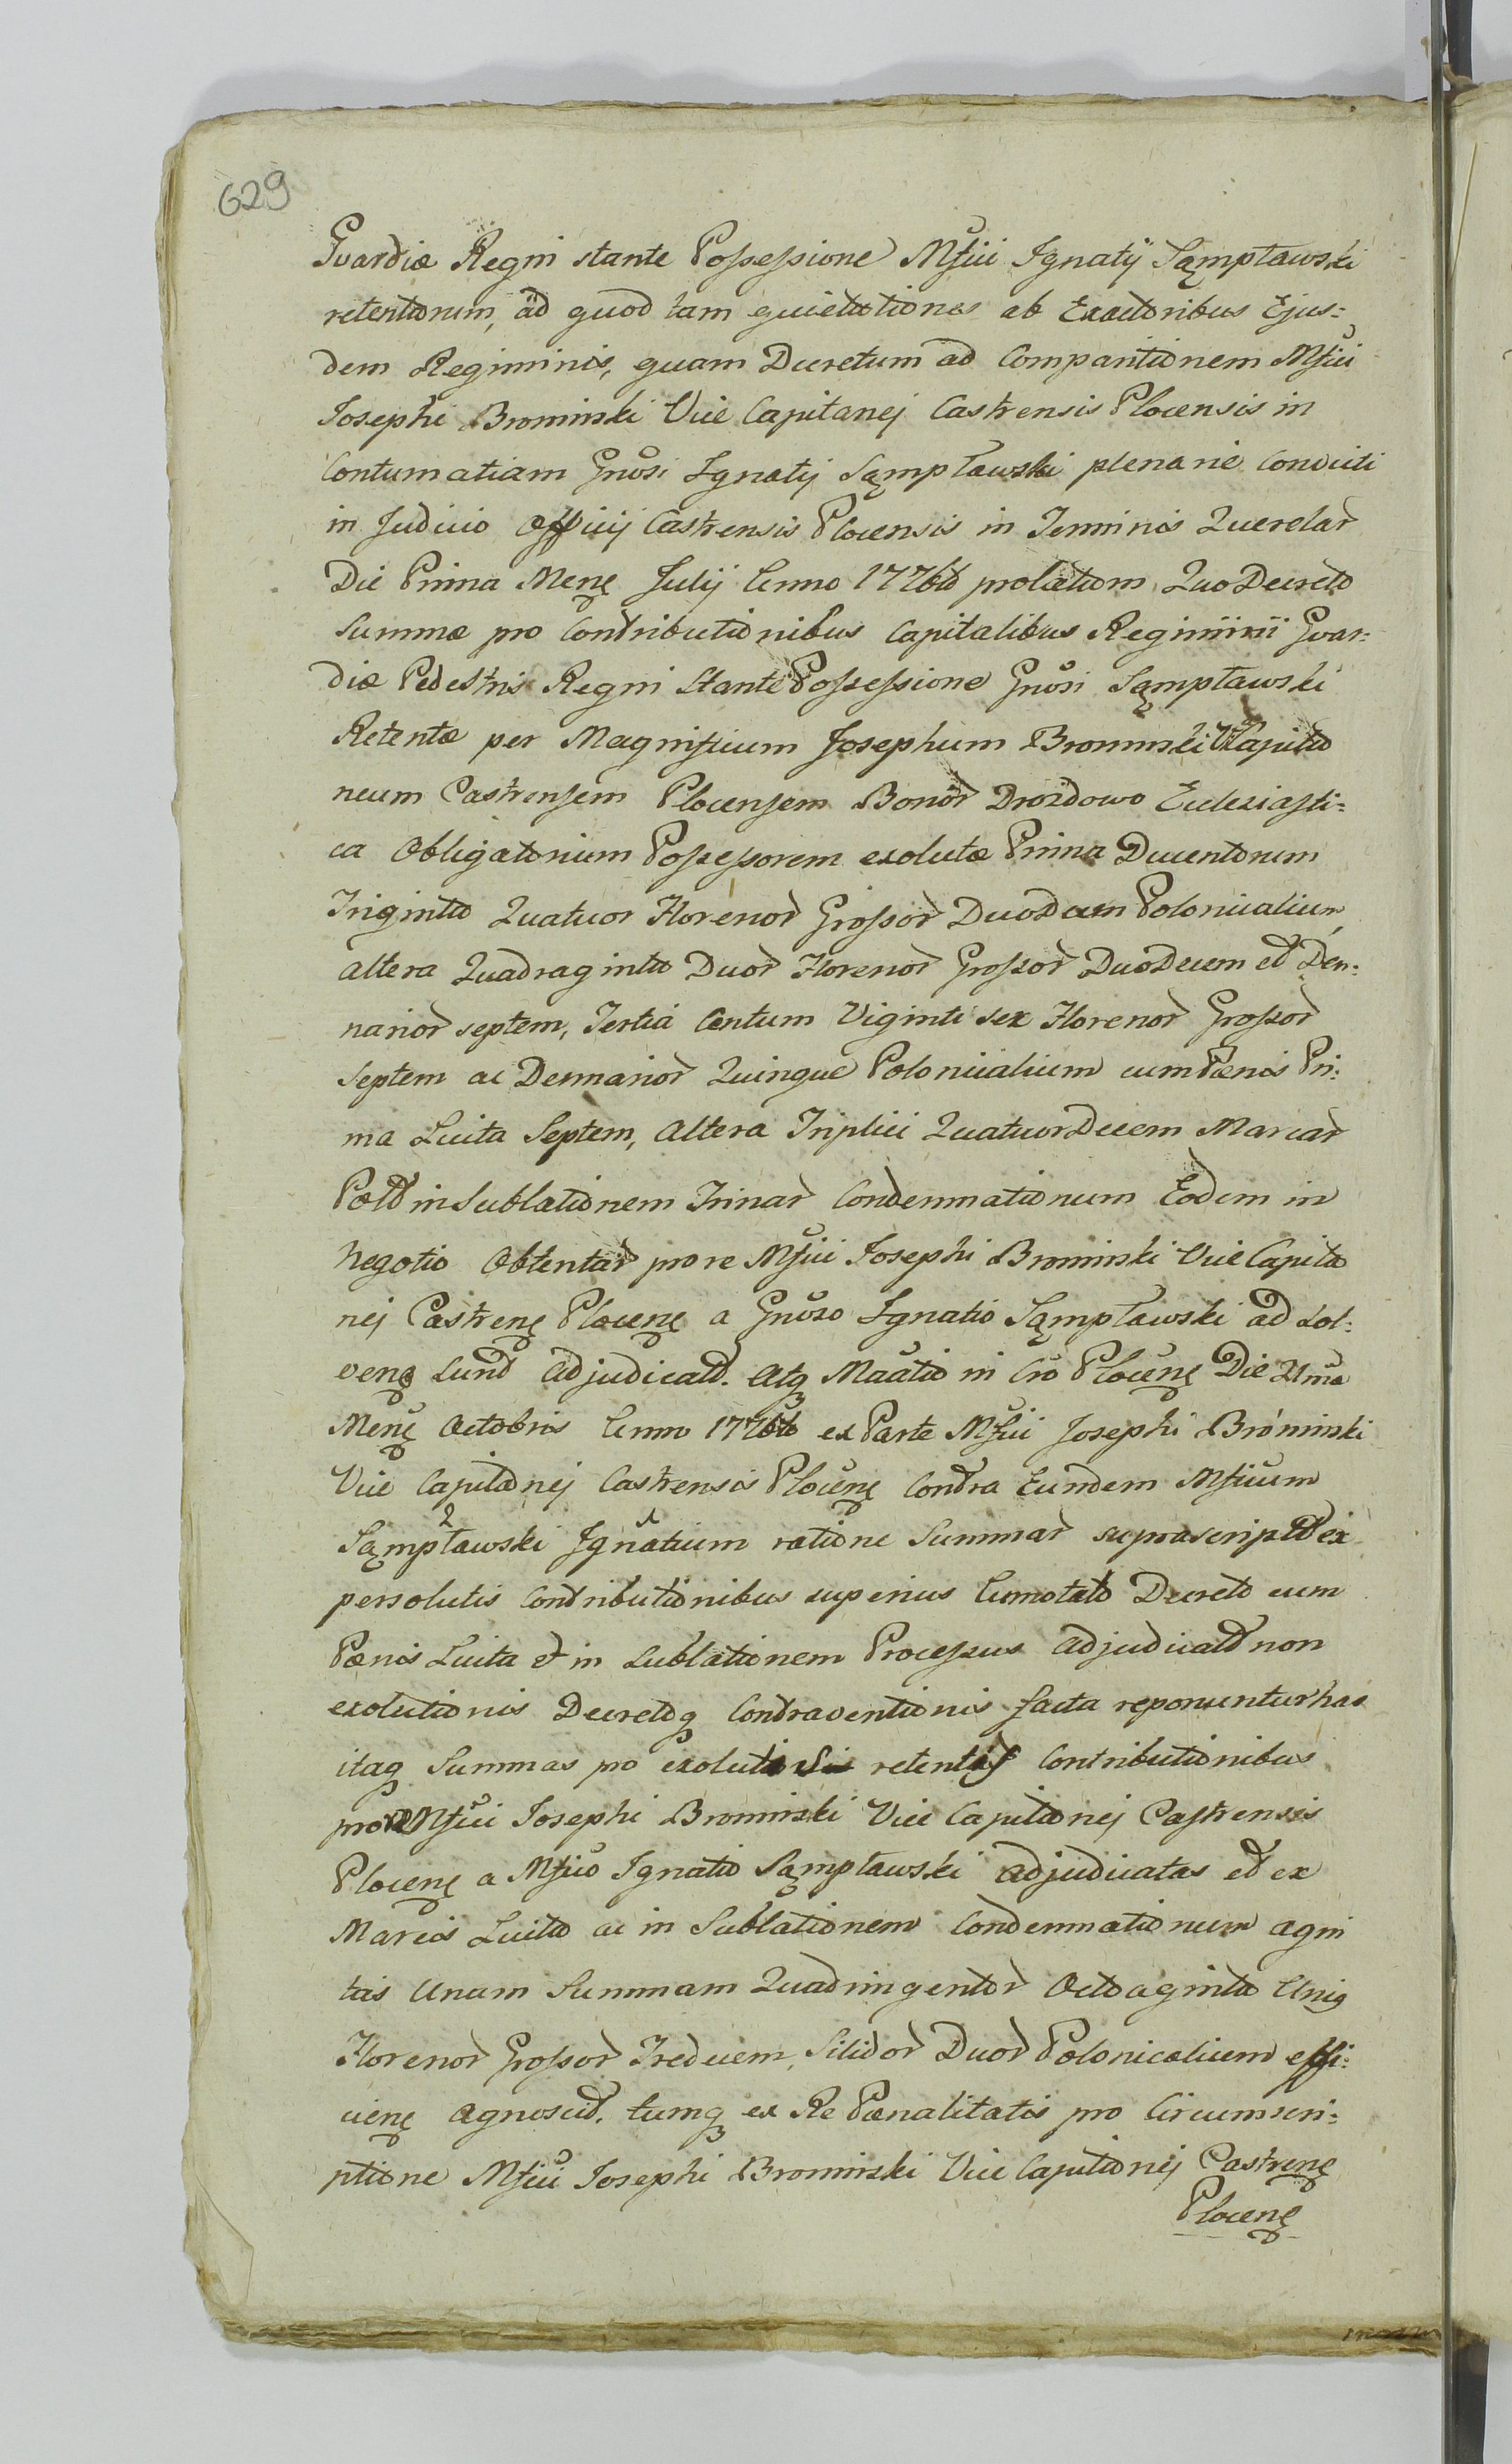 629
Gvardiæ Regni stante Possessione Mfici Ignatij Sąmpławski
retentorum, ad quod tam quietationes ab Exactoribus Ejus=
dem Regiminis, quam Decretum ad Comparitionem Mfici
Josephi Brominski Vice Capitanej Castrensis Plocensis in
Contumatiam Gnosi Ignatij Sąmpławski plenarie Convicti
in Judicio Officij Castrensis Plocensis in Terminis Querelar
Die Prima Mens Julij Anno 1776to prolatum, Quo Decreto
Summæ pro Contributionibus Capitalibus Regiminii Gvar=
diæ Pedestris Regni Stante Possessione Gnosi Sąmpławski
Retentæ per Magnificum Josephum Brominski VCapita
neum Castrensem Plocensem Bonor Drozdowo Ecclesiasti=
ca Obligatorium Possessorem exolutæ Prima Ducentorum
Triginta Quatuor Florenor Grossor Duodecim Polonicalium,
altera Quadraginta Duor Florenor Grossor Duodecem et Den=
narior septem, Tertia Centum Viginti sex Florenor Grossor
septem ac Dennarior Quinque Polonicalium cum Pænis Pri=
ma Luita Septem, altera Triplici QuatuorDecem Marcar
Polł in Sublationem Trinar Condemnationum Eodem in
negotio Obtentar pro re Mfici Josephi Brominski Vice Capita
nej Castrens Plocens a Gnoso Ignatio Sąmpławski ad sol=
vens sunt adjudicatt. Atq Maatio in Cro Plocens Die 21ma
Mens Octobris Anno 1776to ex Parte Mfici Josephi Brominski
Vice Capitanej Castrensis Plocens Contra Eundem Mficum
2 1
Sąmpławski Ignatium ratione Summar suprascriptt ex
persolutis Contributionibus superius Annotato Decreto cum
Pænis Luita et in sublationem Processus adjudicatt non
exolutionis Decretoq Contraventionis facta reponuntur has
itaq Summas pro exolutis retentis Contributionibus
pro re Mfici Josephi Brominski Vice Capitanej Castrensis
Plocens a Mfico Ignatio Sąmpławski adjudicatas et ex
Marcis Luita ac in Sublationem Condemnationum agni
tas Unam Summam Quadringentor Octoaginta Uniq
Florenor Grossor Tredecem, Silidor Duor Polonicalium effi=
ciens agnoscit. tumq ex Re Pænalitatis pro Circumscri=
ptione Mfici Josephi Brominski Vice Capitanej Castrens
Plocens